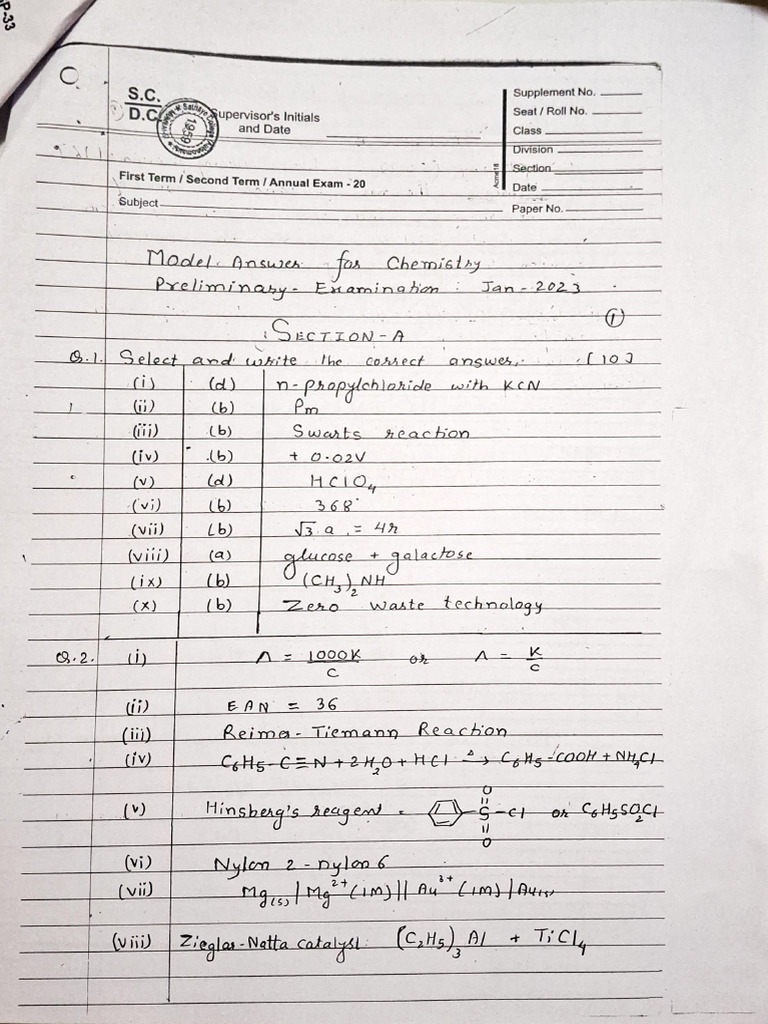 P-33
S.C.
D.C.
Supervisor's Initials
and Date
1959
First Term / Second Term / Annual Exam - 20
Subject
Supplement No.
Seat / Roll No.
Class
Division
Section
Date
Paper No.
Model Answer for Chemistry
Preliminary - Examination : Jan - 2023
①
SECTION - A
Q.1. Select and write the correct answer. [10]
(i) (d) n-propylchloride with KCN
(ii) (b) Pm
(iii) (b) Swarts reaction
(iv) (b) + 0.02V
(v) (d) HClO₄
(vi) (b) 368°
(vii) (b) √3 a = 4r
(viii) (a) glucose + galactose
(ix) (b) (CH₃)₂NH
(x) (b) Zero waste technology
Q.2. (i) Λ = 1000K/C or Λ = K/C
(ii) EAN = 36
(iii) Reimer - Tiemann Reaction
(iv) C₆H₅-C≡N + 2H₂O + HCl →Δ C₆H₅-COOH + NH₄Cl
(v) Hinsberg's reagent = -S(=O)(=O)-Cl or C₆H₅SO₂Cl
(vi) Nylon 2 - nylon 6
(vii) Mg(s) | Mg²⁺(1M) || Au³⁺(1M) | Au(s)
(viii) Zieglar-Natta catalyst: (C₂H₅)₃Al + TiCl₄